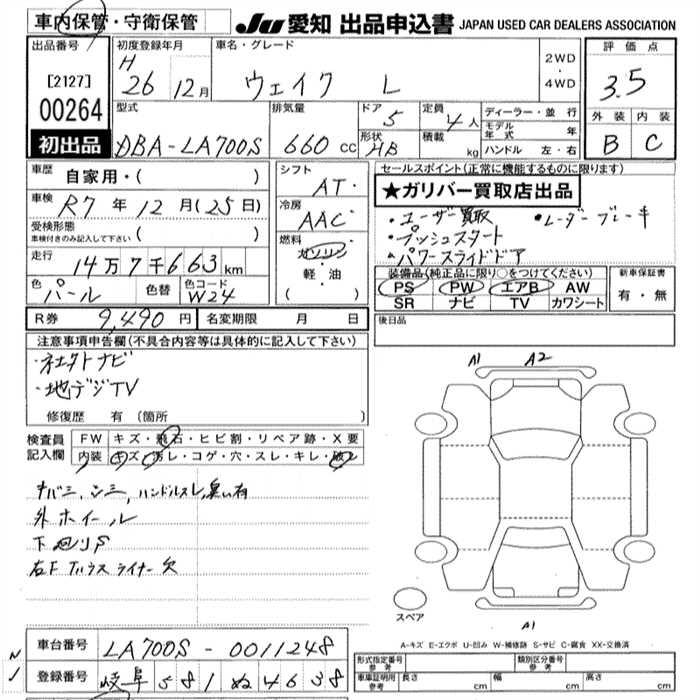 車内保管・守衛保管 JU 愛知 出品申込書 JAPAN USED CAR DEALERS ASSOCIATION
出品番号 初度登録年月 車名・グレード 評価点
[2127] H 26 12月 ウェイク L 2WD・4WD 3.5
00264 型式 排気量 ドア 5 定員 4人 ディーラー・並行 外装 内装
初出品 DBA-LA700S 660cc 形状 HB 積載 kg モデル年式 年 B C
ハンドル 左・右
車歴 自家用・( ) シフト AT・ セールスポイント(正常に機能するものに限ります)
★ガリバー買取店出品
車検 R7年12月(25日) 冷房 AAC
・ユーザー買取 ・レーダーブレーキ
受検形態 車検付きのみ記入して下さい ( ) 燃料 ガソリン ・プッシュスタート
走行 14万7千663km 軽・油 ( ) ・パワースライドドア
色 パール 色替 色コード W24 装備品(純正品に限り○をつけてください) 新車保証書
PS PW エアB AW 有・無
SR ナビ TV カワシート
R券 9,490円 名変期限 月 日 後日品
注意事項申告欄(不具合内容等は具体的に記入して下さい)
・社外ナビ
・地デジTV
修復歴 有 (箇所
A1 A2
検査員記入欄 FW キズ・飛石・ヒビ割・リペア跡・X要
内装 キズ・汚レ・コゲ・穴・スレ・キレ・破レ
ハンドルスレ,臭い有
外ホイール
下廻りS
スペア A1
A-キズ E-エクボ U-凹み W-補修跡 S-サビ C-腐食 XX-交換済
車台番号 LA700S-0011248
登録番号 岐阜 581 ぬ 4638
形式指定番号 参考 類別区分番号 参考
車庫証明用 参考 長さ cm 幅 cm 高さ cm